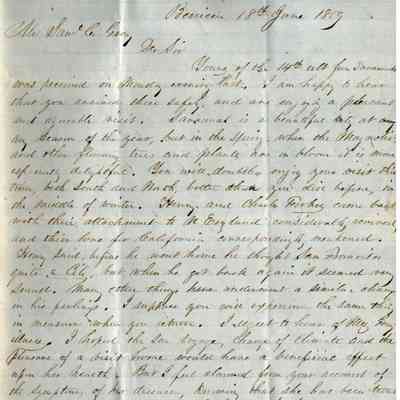 Benicia 18th June 1859
Mr. Saml. C. Gray
Dr Sir
Yours of the 14th ult from Savannah
was received on Monday evening last. I am happy to hear
that you arrived there safely, and are enjoying a pleasant
and agreeable visit. Savannah is a beautiful city at any
season of the year, but in the Spring when the Magnolia
and other flowering trees and plants are in bloom it is more
especially delightful. You will doubtless enjoy your visit this
time, both South and North, better than you did before, in
the middle of winter. Henry and Charles came back
with their attachment to N. England considerably
and their love for California correspondingly increased.
Henry said, before he went home he thought San Francisco
quite a City, but when he got back again it seemed very
small. Many other things have underwent a similar change
in his feelings. I suppose you will experience the same thing
in measure when you return. I regret to hear of Mrs
illness. I hoped the Sea Voyage, Change of Climate and the
pleasure of a visit home would have a beneficial effect
upon her health. But I feel alarmed from your account of
the symptoms of her disease, knowing that she has been